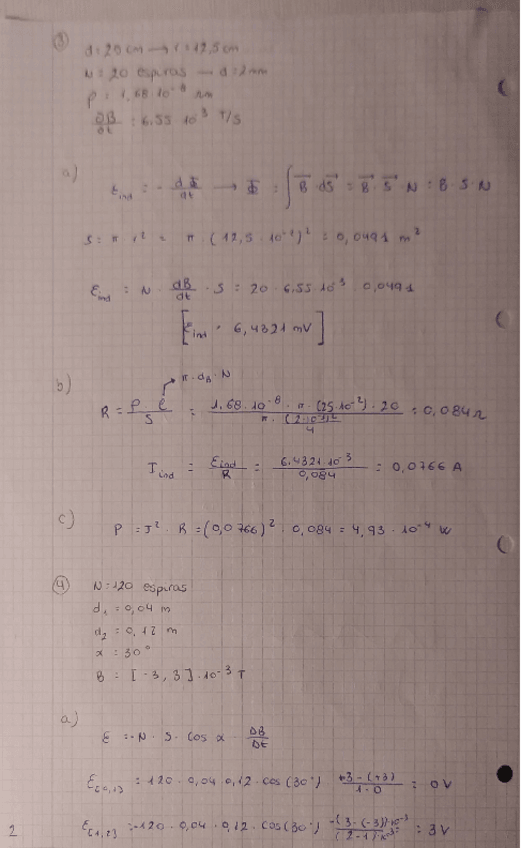 ③
d = 20 cm → r = 12,5 cm
N = 20 espiras — d = 2mm
ρ = 1,68·10⁻⁸ Ωm
∂B/∂t = 6,55·10⁻³ T/s
a) Ɛind = - dΦ/dt → Φ = ∫B⃗·dS⃗ = B⃗·S⃗·N = B·S·N
S = π r² = π·(12,5·10⁻²)² = 0,0491 m²
Ɛind = N · dB/dt · S = 20·6,55·10⁻³·0,0491
[Ɛind = 6,4321 mV]
π·dB·N
b) R = ρ·l/S = 1,68·10⁻⁸·π·(25·10⁻²)·20 / π·(2·10⁻³)²/4 = 0,084 Ω
Iind = Ɛind/R = 6,4321·10⁻³/0,084 = 0,0766 A
c) P = I²·R = (0,0766)²·0,084 = 4,93·10⁻⁴ W
④ N = 120 espiras
d₁ = 0,04 m
d₂ = 0,12 m
α = 30°
B = [-3, 3]·10⁻³ T
a)
Ɛ = -N·S·cos α · ΔB/Δt
Ɛ[0,1] = -120·0,04·0,12·cos(30°) +3-(+3)/1-0 = 0V
2 Ɛ[1,2] = -120·0,04·0,12·cos(30°) -(3-(-3))·10⁻³/(2-1)·10⁻³ = 3V